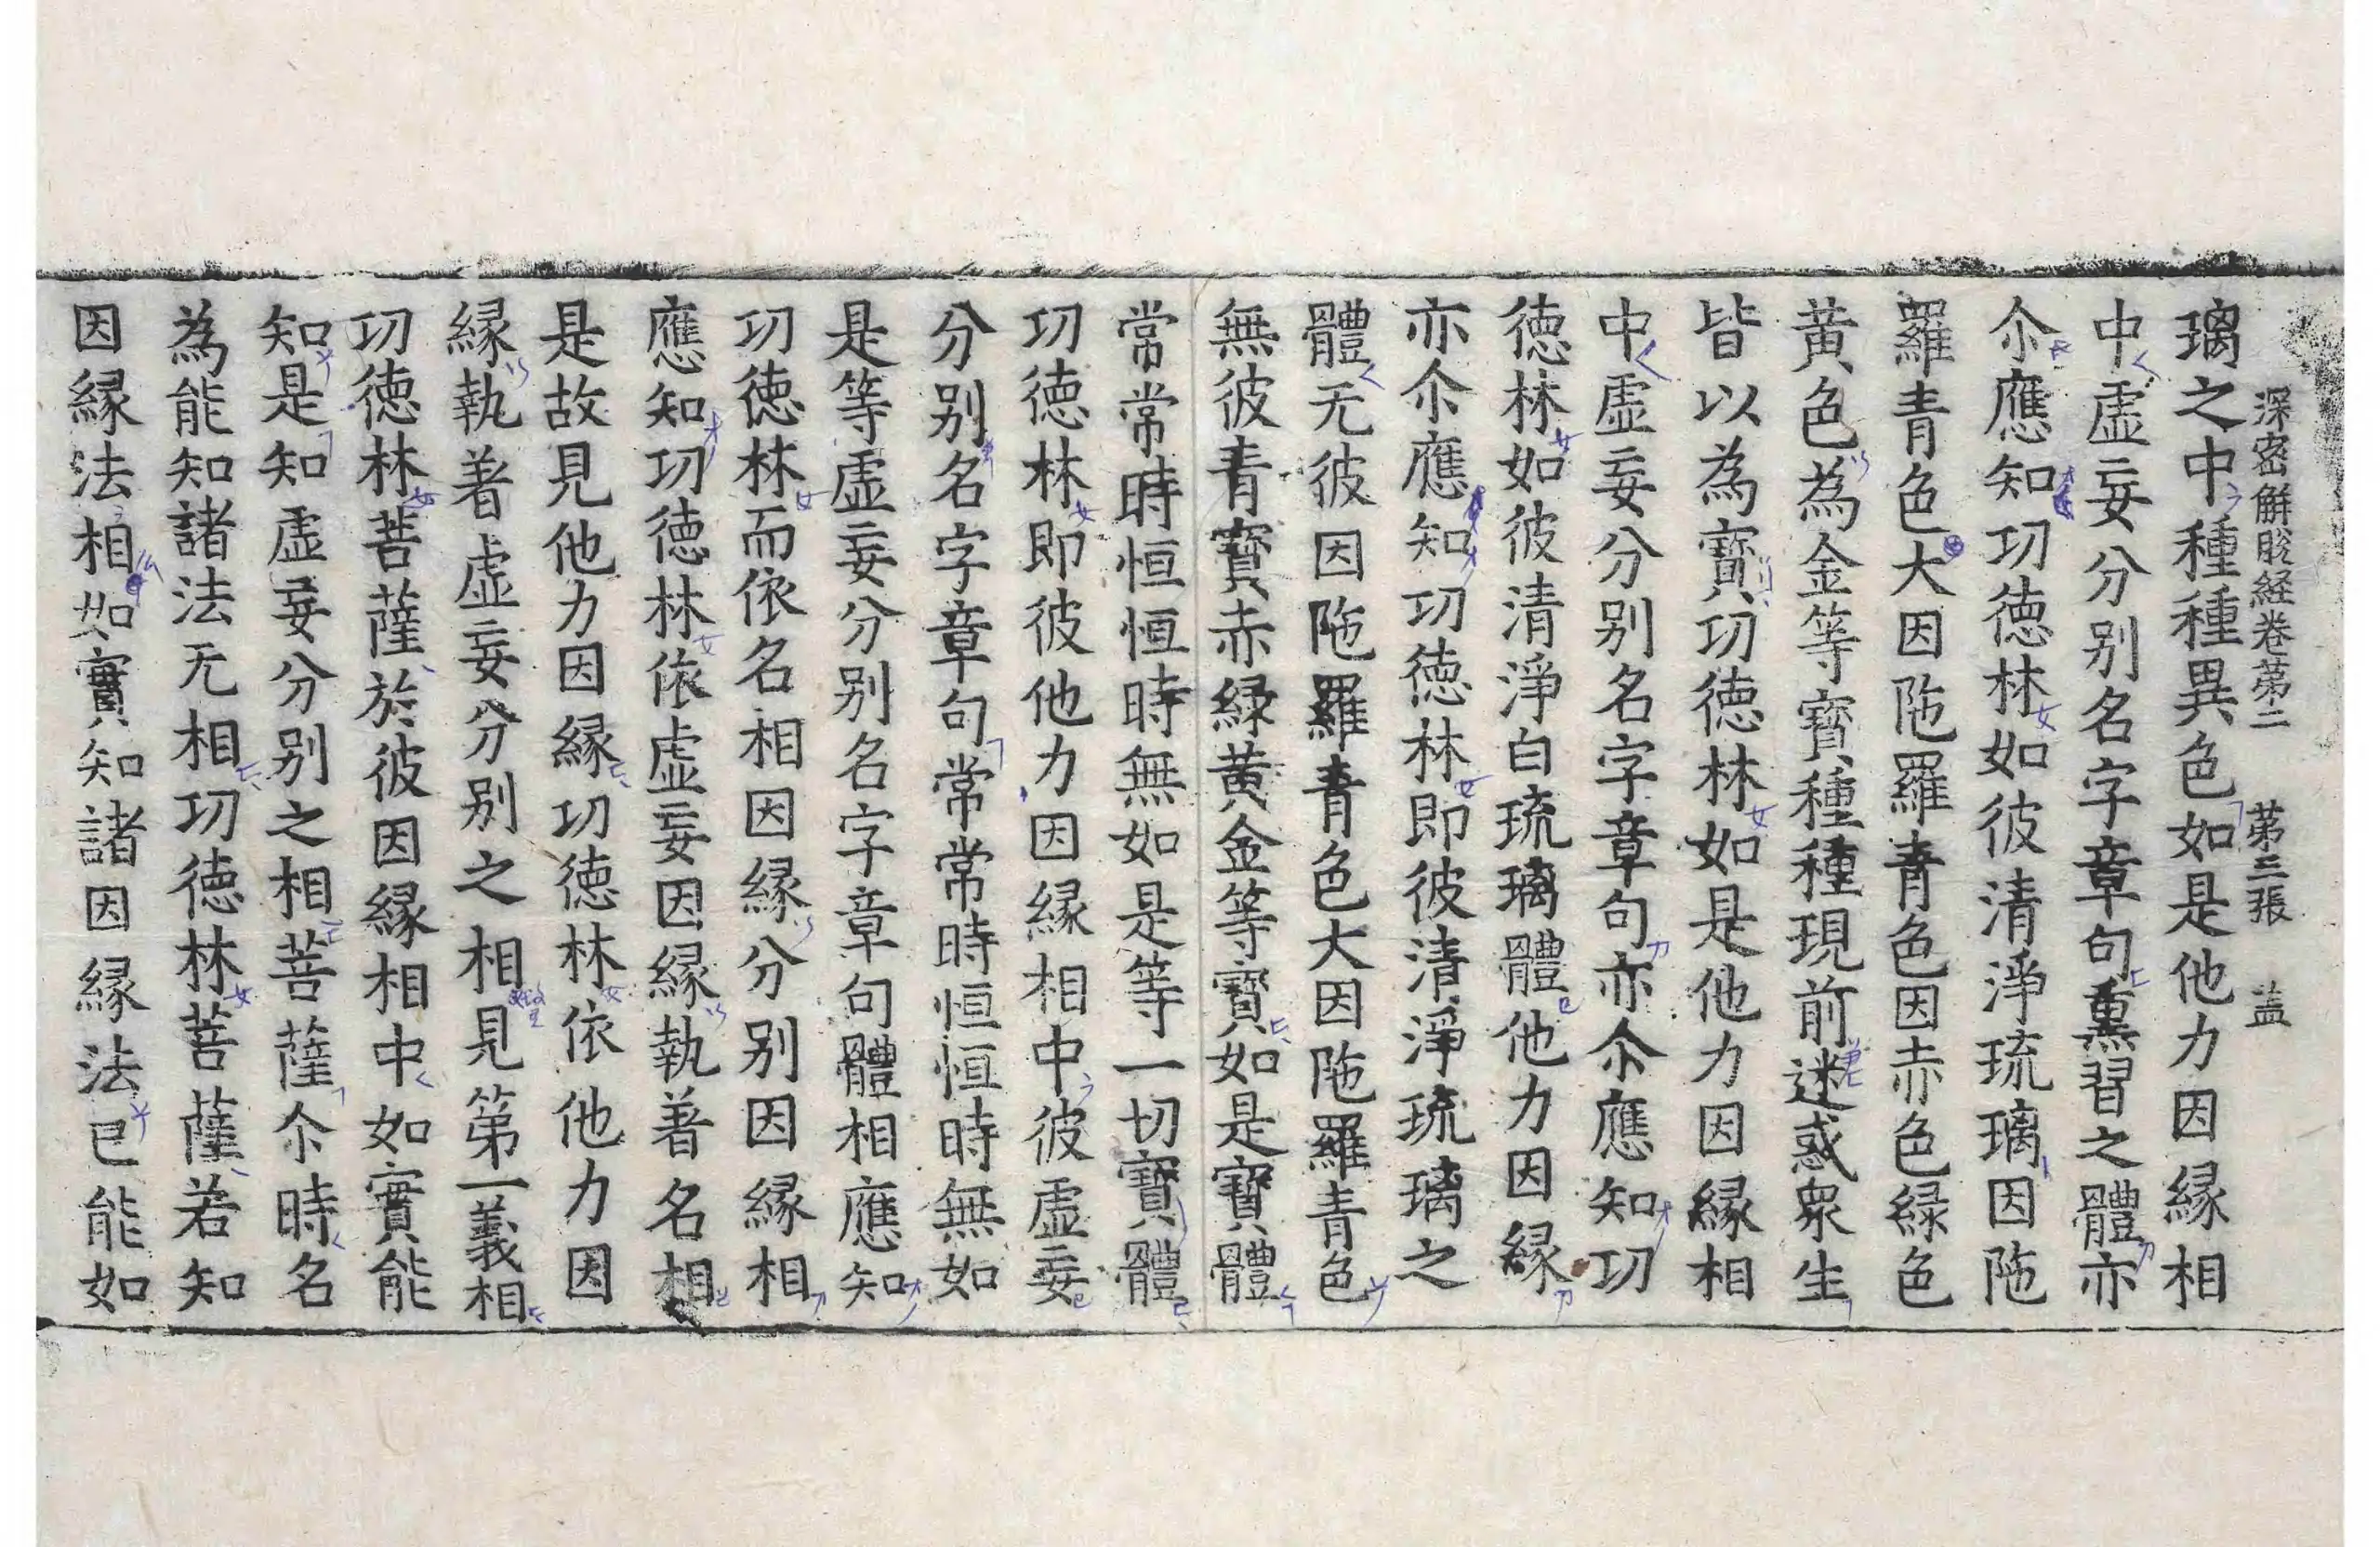 深密解脫経卷苐二 苐三張 盖
璃之中種種異色如是他力因縁相
中虛妄分別名字章句熏習之體亦
尒應知功徳林如彼清淨琉璃因陁
羅青色大因陁羅青色因赤色緑色
黄色為金等寳種種現前迷惑衆生
皆以為寳功徳林如是他力因縁相
中虛妄分別名字章句亦尒應知功
徳林如彼清淨白琉璃體他力因縁
亦尒應知功徳林即彼清淨琉璃之
體无彼因陁羅青色大因陁羅青色
無彼青寳赤緑黄金等寳如是寳體
常常時恒恒時無如是等一切寳體
功徳林即彼他力因縁相中彼虛妄
分別名字章句常常時恒恒時無如
是等虛妄分別名字章句體相應知
功徳林而依名相因縁分別因縁相
應知功徳林依虛妄因縁執著名相
是故見他力因縁功徳林依他力因
縁執著虛妄分別之相見第一義相
功徳林菩薩於彼因縁相中如實能
知是知虛妄分別之相菩薩尒時名
為能知諸法无相功徳林菩薩若知
因縁法相如實知諸因縁法已能如